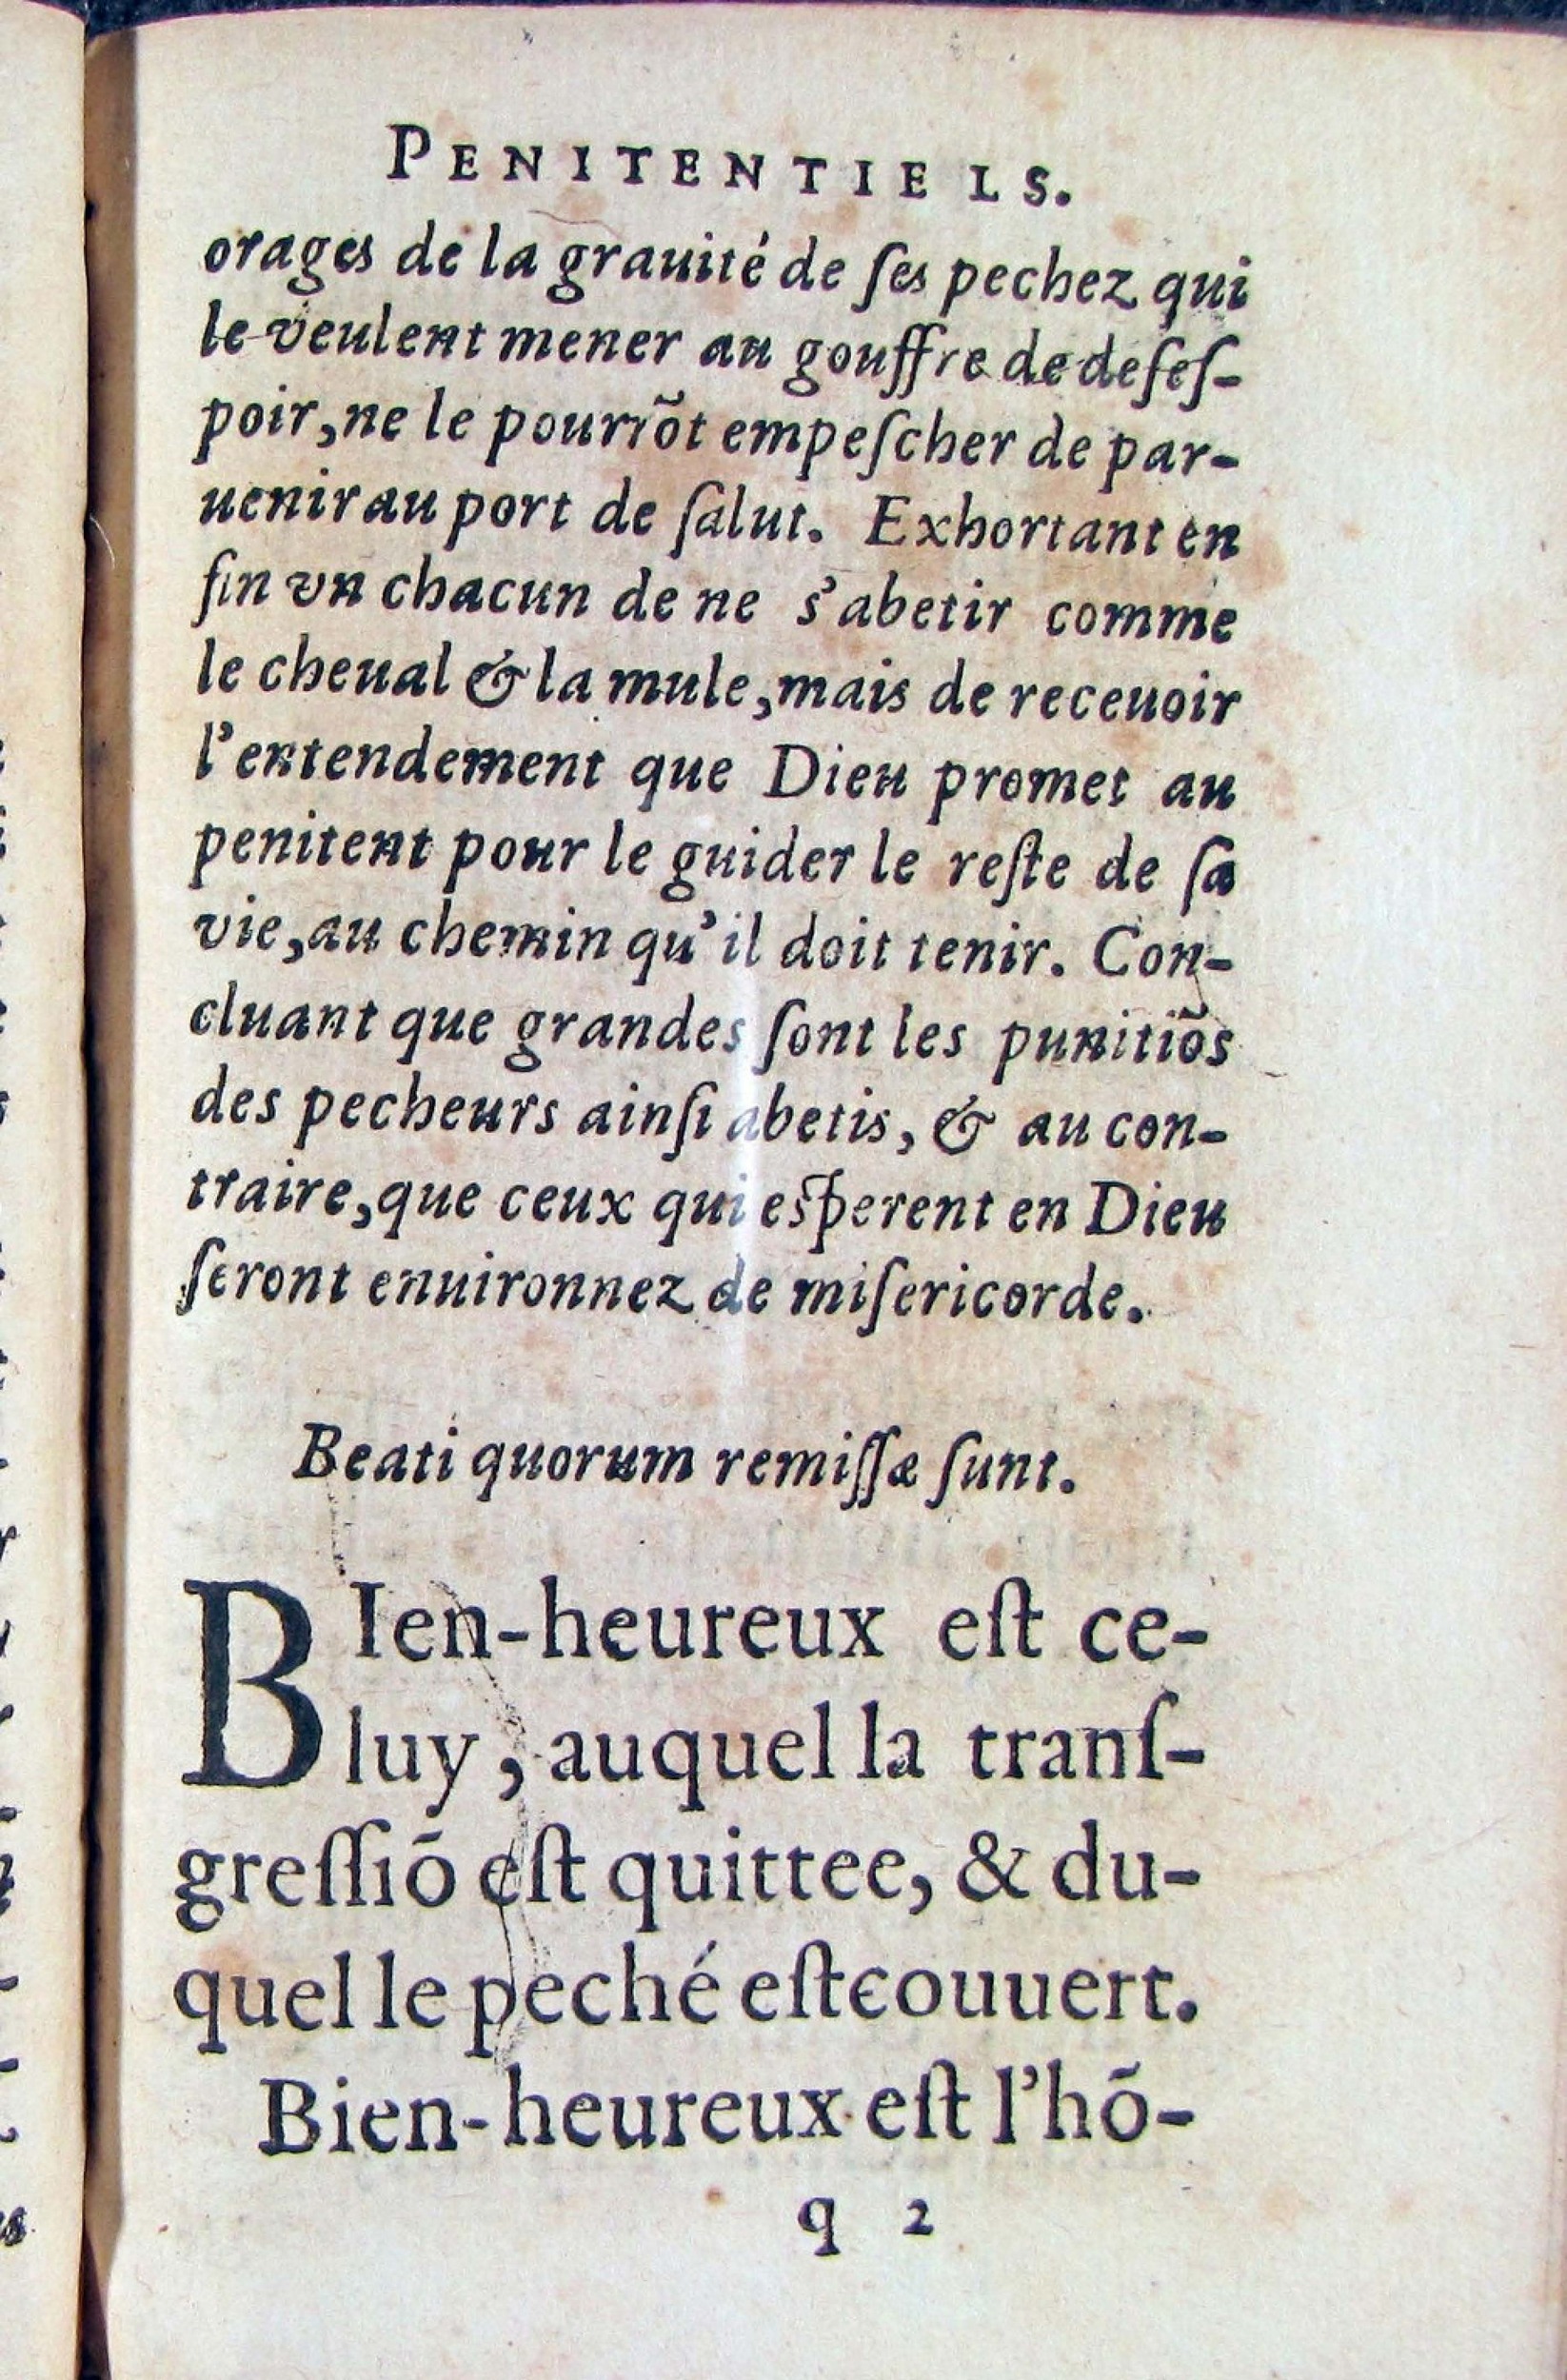 PENITENTIELS.
orages de la grauité de ſes pechez qui
le veulent mener au gouffre de deſeſ-
poir, ne le pourrõt empeſcher de par-
uenir au port de ſalut. Exhortant en
fin vn chacun de ne s'abetir comme
le cheual & la mule, mais de receuoir
l'entendement que Dieu promet au
penitent pour le guider le reſte de ſa
vie, au chemin qu'il doit tenir. Con-
cluant que grandes ſont les punitiõs
des pecheurs ainſi abetis, & au con-
traire, que ceux qui eſperent en Dieu
ſeront enuironnez de miſericorde.
Beati quorum remiſſæ ſunt.
BIen-heureux eſt ce-
luy, auquel la tranſ-
greſſiõ eſt quittee, & du-
quel le peché eſt couuert.
Bien-heureux eſt l'hõ-
q 2